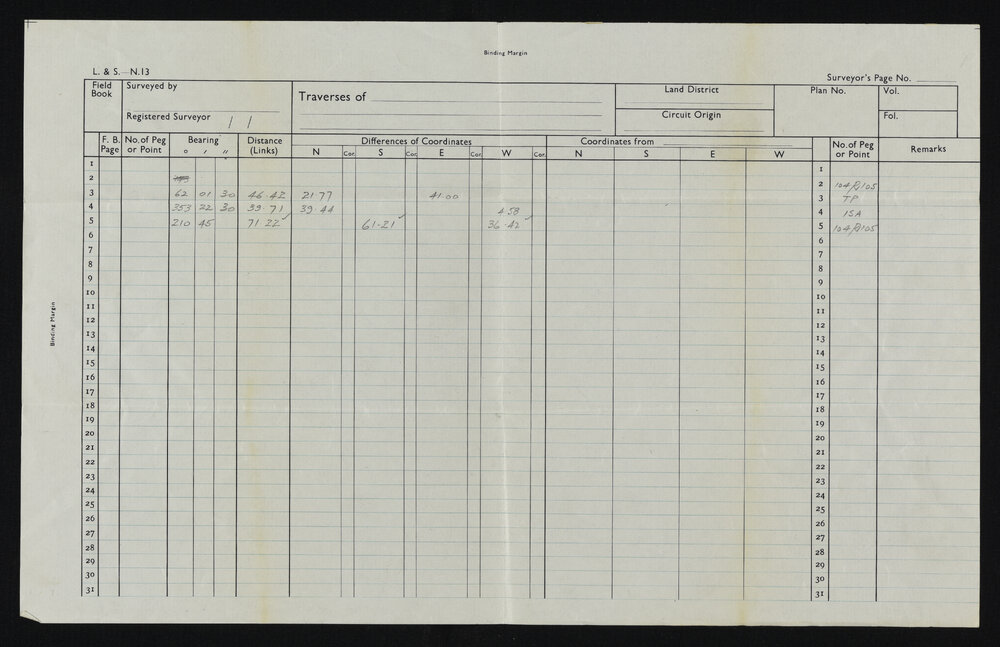 Binding Margin
L. & S.—N.13
Surveyor's Page No.
Field Book
Surveyed by
Registered Surveyor / /
Traverses of
Land District
Circuit Origin
Plan No.
Vol.
Fol.
F. B. Page
No. of Peg or Point
Bearing ° ′ ″
Distance (Links)
Differences of Coordinates
N Cor. S Cor. E Cor. W Cor.
Coordinates from
N S E W
No. of Peg or Point
Remarks
1 1
2 2 104/R/105
3 62 01 30 46.42 21.77 41.00 3 TP
4 353 22 30 39.71 39.44 4.58 4 ISA
5 210 45 71.22 ✓ 61.21 ✓ 36.42 ✓ 5 104/R/105
6 6
7 7
8 8
9 9
10 10
11 11
12 12
13 13
14 14
15 15
16 16
17 17
18 18
19 19
20 20
21 21
22 22
23 23
24 24
25 25
26 26
27 27
28 28
29 29
30 30
31 31
Binding Margin